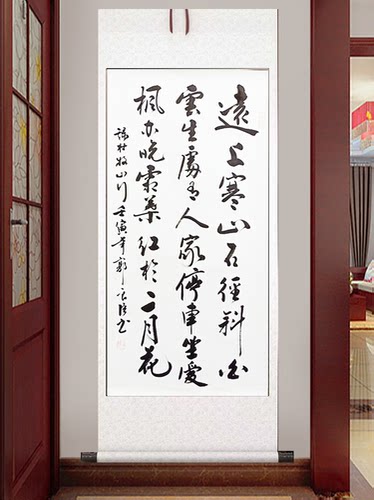 遠上寒山石徑斜白
雲生處有人家停車坐愛
楓林晚霜葉紅於二月花
杜牧山行壬寅年郭書